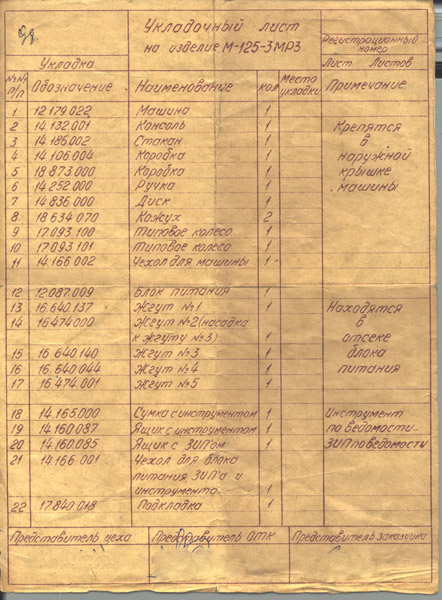 Укладочный лист
на изделие М-125-3МР3
Регистрационный
номер
Укладка
Лист Листов
№№ п/п Обозначение Наименование кол Место укладки Примечание
1 12 179.022 Машина 1
2 14 132 001 Консоль 1 Крепятся
3 14 186 002 Стакан 1 в
4 14 106 004 Коробка 1 наружной
5 18 873 000 Коробка 1 крышке
6 14 252 000 Ручка 1 машины
7 14 836 000 Диск 1
8 18 634 070 Кожух 2
9 17 093 100 Типовое колесо 1
10 17 093 101 Типовое колесо 1
11 14 166 002 Чехол для машины 1
12 12 087.009 Блок питания 1
13 16 640 137 Жгут №1 1 Находятся
14 16 474 000 Жгут №2 (насадка в
к жгуту №3) 1 отсеке
15 16 640 140 Жгут №3 1 блока
16 16 640 044 Жгут №4 1 питания
17 16 474.001 Жгут №5 1
18 14 165 000 Сумка с инструментом 1 Инструмент
19 14 160 087 Ящик с инструментом 1 по ведомости-
20 14 160 085 Ящик с ЗИП'ом 1 ЗИП по ведомости
21 14 166 001 Чехол для блока
питания ЗИП'а и
инструмента 1
22 17 840 018 Подкладка 1
Представитель цеха Представитель ОТК Представитель заказчика